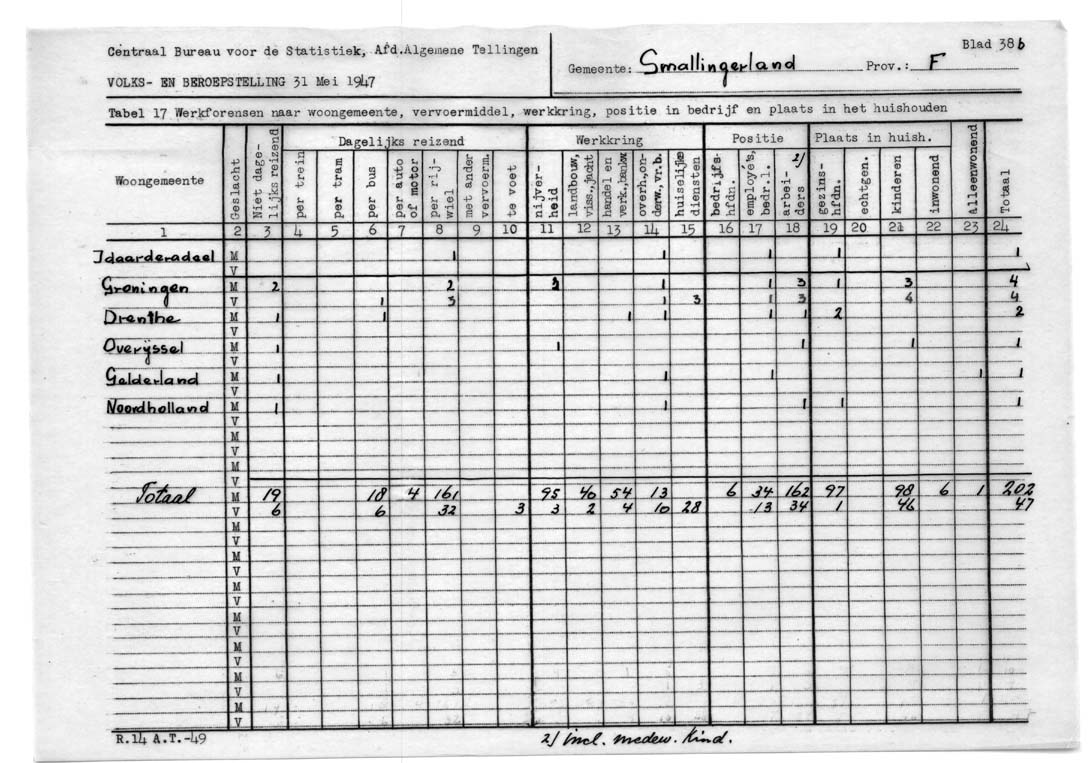 Centraal Bureau voor de Statistiek, Afd.Algemene Tellingen
VOLKS- EN BEROEPSTELLING 31 Mei 1947
Gemeente: Smallingerland Prov.: F
Blad 38b
Tabel 17 Werkforensen naar woongemeente, vervoermiddel, werkkring, positie in bedrijf en plaats in het huishouden
Woongemeente
Geslacht
Niet dage-
lijks reizend
Dagelijks reizend
per trein
per tram
per bus
per auto
of motor
per rij-
wiel
met ander
vervoerm.
te voet
Werkkring
nijver-
heid
landbouw,
viss.,jacht
handel en
verk.,bankw
overh.,on-
derw.,vr.b.
huiselijke
diensten
Positie
bedrijfs-
hfdn.
employé's,
bedr.l.
arbei-
ders
2/
Plaats in huish.
gezins-
hfdn.
echtgen.
kinderen
inwonend
Alleenwonend
Totaal
1 2 3 4 5 6 7 8 9 10 11 12 13 14 15 16 17 18 19 20 21 22 23 24
Idaarderadeel M 1 1 1 1 1
V
Groningen M 2 2 1 1 3 1 3 4
V 1 3 1 3 1 3 4 4
Drenthe M 1 1 1 1 1 1 2 2
V
Overijssel M 1 1 1 1 1
V
Gelderland M 1 1 1 1 1
V
Noordholland M 1 1 1 1 1
V
M
V
M
V
M
V
Totaal M 19 18 4 161 95 40 54 13 6 34 162 97 98 6 1 202
V 6 6 32 3 3 2 4 10 28 13 34 1 46 47
M
V
M
V
M
V
M
V
M
V
M
V
M
V
R.14 A.T.-49
2/ incl. medew. kind.